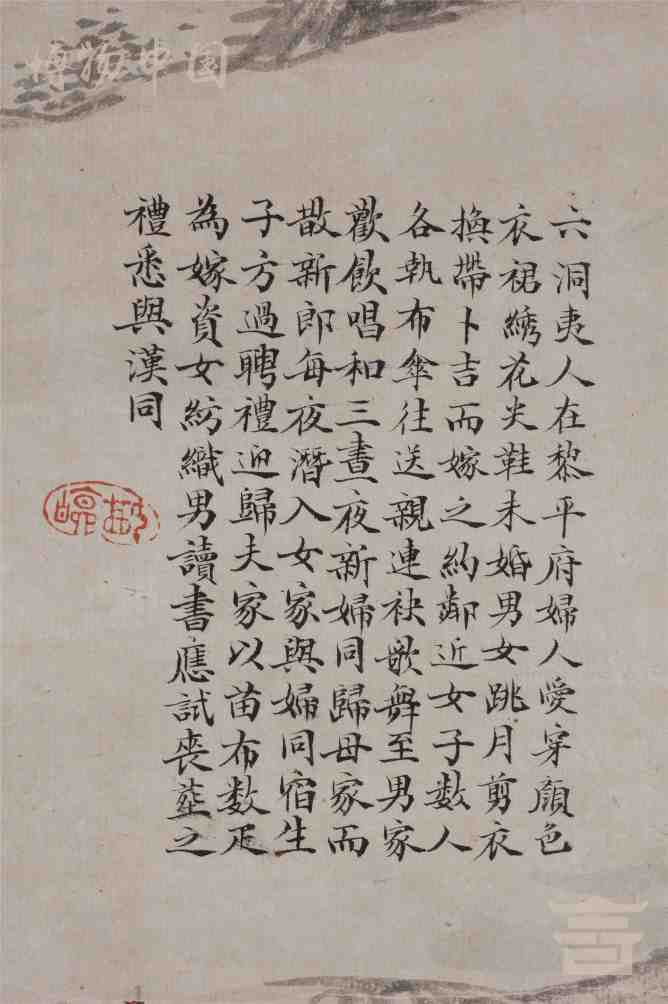 六洞夷人在黎平府婦人愛穿顏色
衣裙綉花尖鞋未婚男女跳月剪衣
換帶卜吉而嫁之約鄰近女子数人
各執布傘往送親連袂歌舞至男家
歡飲唱和三晝夜新婦同歸母家而
散新郎每夜潛入女家與婦同宿生
子方過聘禮迎歸夫家以苗布数疋
為嫁資女紡織男讀書應試喪葬之
禮悉與漢同
博物中国